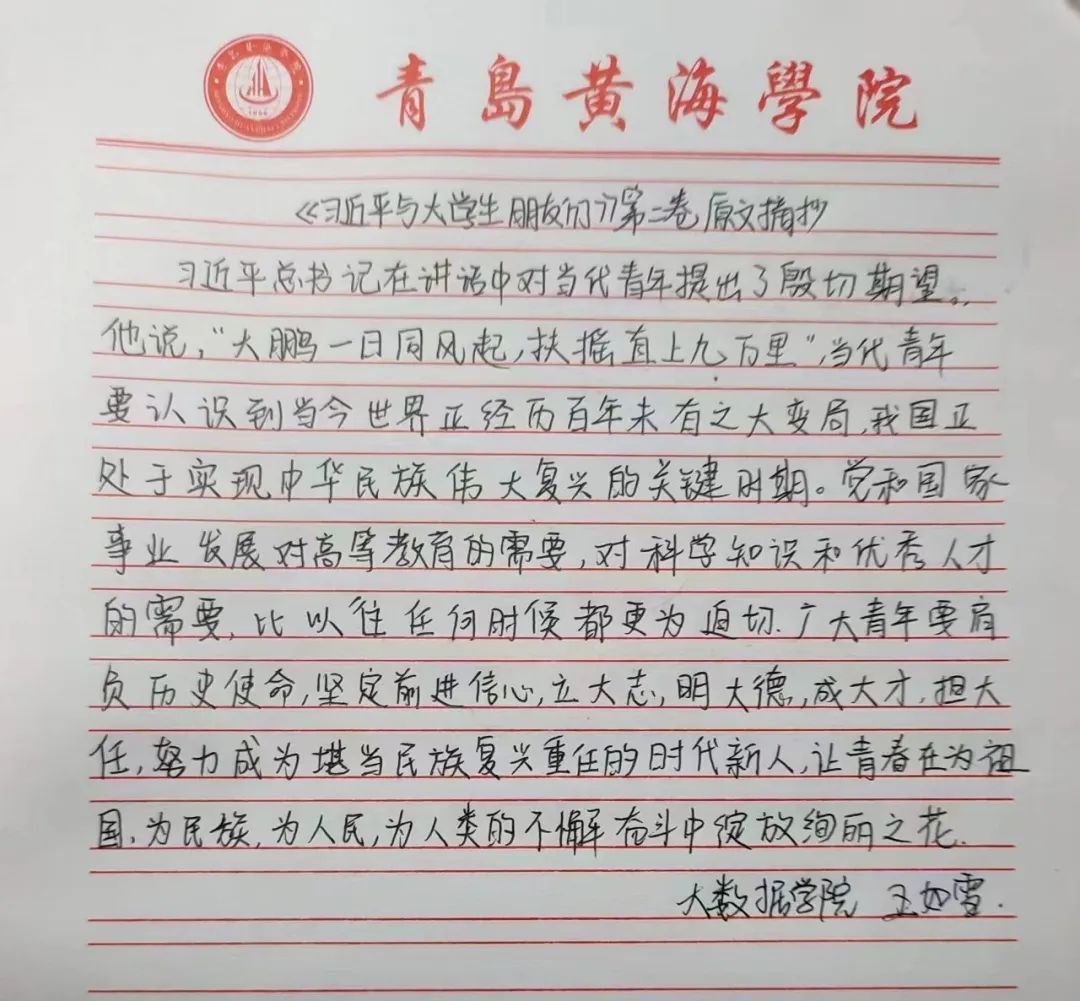 青島黄海學院
《习近平与大学生朋友们》第二卷原文摘抄
习近平总书记在讲话中对当代青年提出了殷切期望。
他说，“大鹏一日同风起，扶摇直上九万里”，当代青年
要认识到当今世界正经历百年未有之大变局，我国正
处于实现中华民族伟大复兴的关键时期。党和国家
事业发展对高等教育的需要，对科学知识和优秀人才
的需要，比以往任何时候都更为迫切.广大青年要肩
负历史使命，坚定前进信心，立大志，明大德，成大才，担大
任，努力成为堪当民族复兴重任的时代新人，让青春在为祖
国，为民族，为人民，为人类的不懈奋斗中绽放绚丽之花.
大数据学院 王如雪.